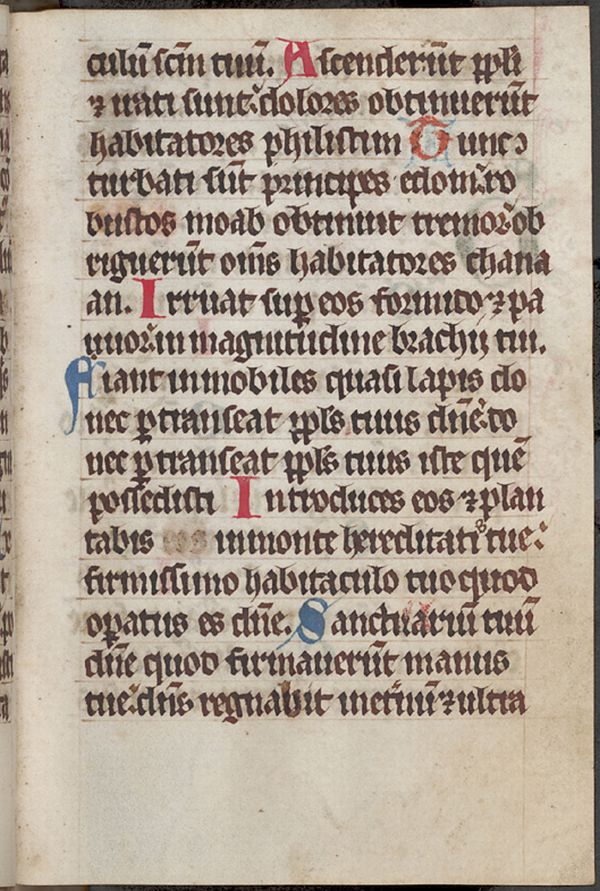 culū scm̄ tuū. Ascenderūt ppl̄i
⁊ irati sunt: dolores obtinuerūt
habitatores philistim Tunc
turbati sūt principes edom: ro
bustos moab obtinuit tremor: ob
riguerūt om̄s habitatores chana
an. Irruat suꝑ eos formido ⁊ pa
uuor: in magnitudine brachij tui.
Fiant inmobiles quasi lapis do
nec ꝑtranseat ppl̄s tuus dn̄e: do
nec ꝑtranseat ppl̄s tuus iste quē
possedisti Introduces eos ⁊ plan
tabis eos in monte hereditatis tue:
firmissimo habitaculo tuo quod
oꝑatus es dn̄e. Sanctuariū tuū
dn̄e quod firmauerūt manus
tue: dn̄s regnabit in et̄nū ⁊ ultra